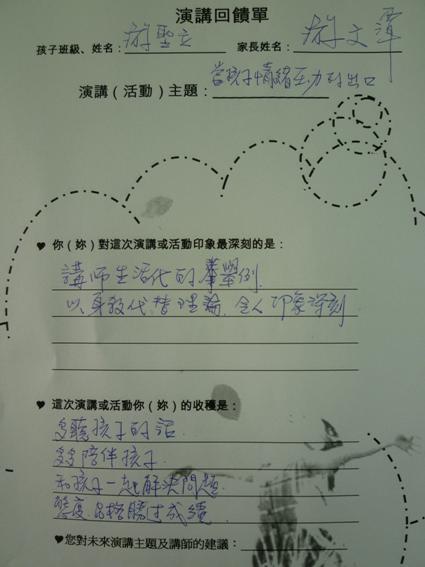 演講回饋單
孩子班級、姓名：游聖立 家長姓名：游文潭
演講（活動）主題：當孩子情緒壓力的出口
♥ 你（妳）對這次演講或活動印象最深刻的是：
講師生活化的舉例，
以身教代替理論，令人印象深刻
♥ 這次演講或活動你（妳）的收穫是：
多聽孩子的話
多多陪伴孩子
和孩子一起解決問題
態度品格勝過成績
♥您對未來演講主題及講師的建議：